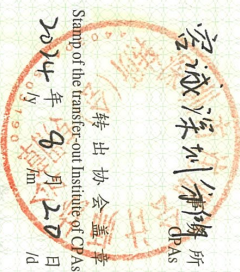 容诚深圳分所 所
CPAs
转出协会盖章
Stamp of the transfer-out Institute of CPAs
2024 年 8 月 20 日
/y /m /d